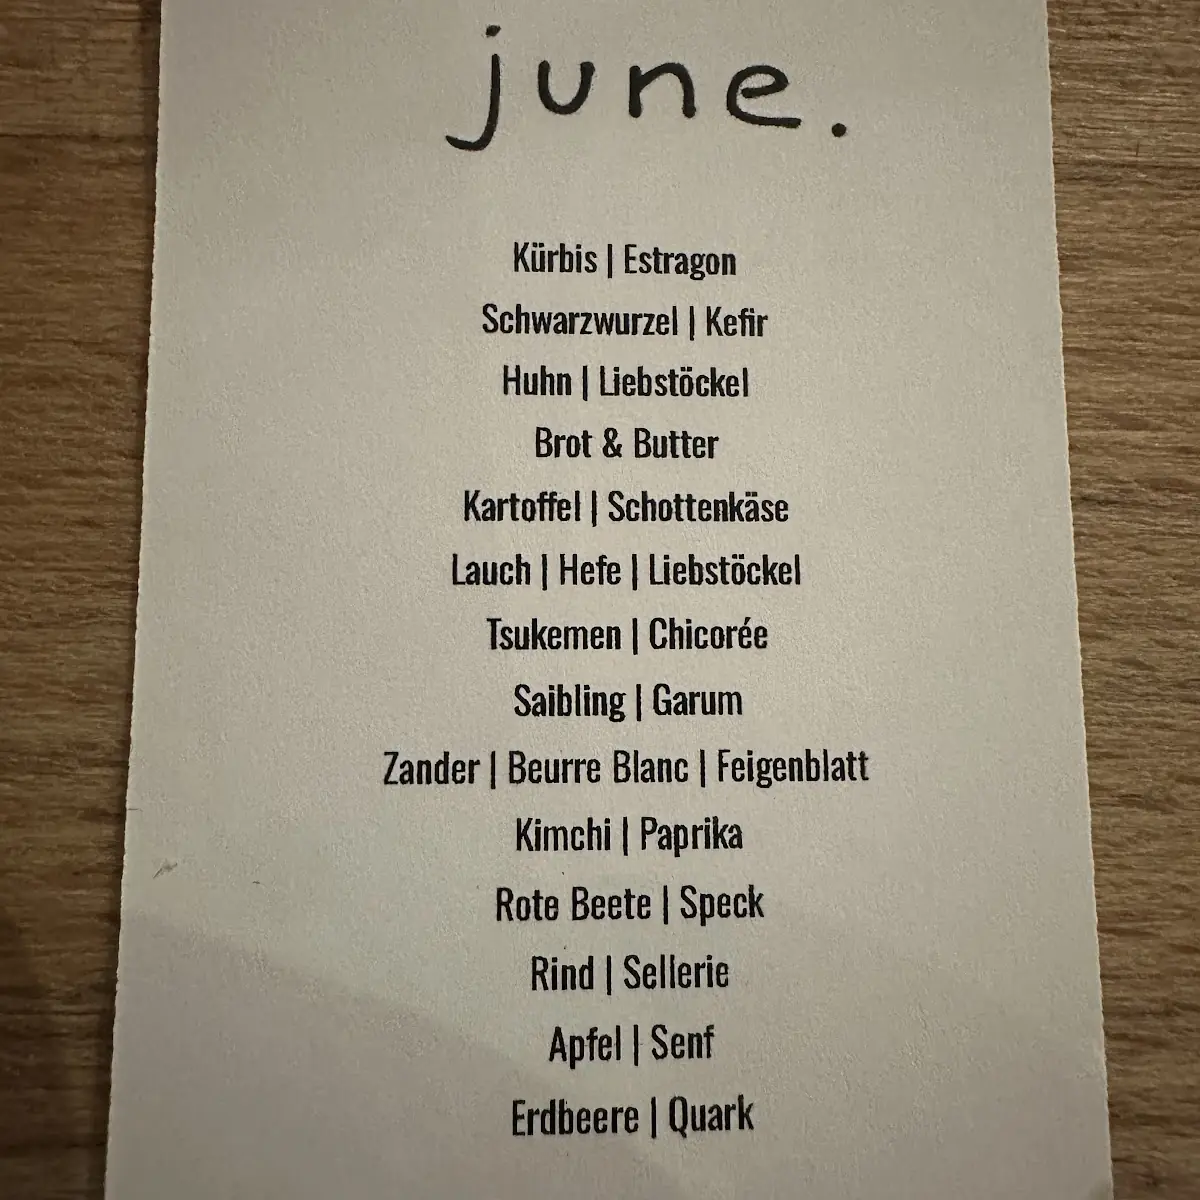 june.
Kürbis | Estragon
Schwarzwurzel | Kefir
Huhn | Liebstöckel
Brot & Butter
Kartoffel | Schottenkäse
Lauch | Hefe | Liebstöckel
Tsukemen | Chicorée
Saibling | Garum
Zander | Beurre Blanc | Feigenblatt
Kimchi | Paprika
Rote Beete | Speck
Rind | Sellerie
Apfel | Senf
Erdbeere | Quark